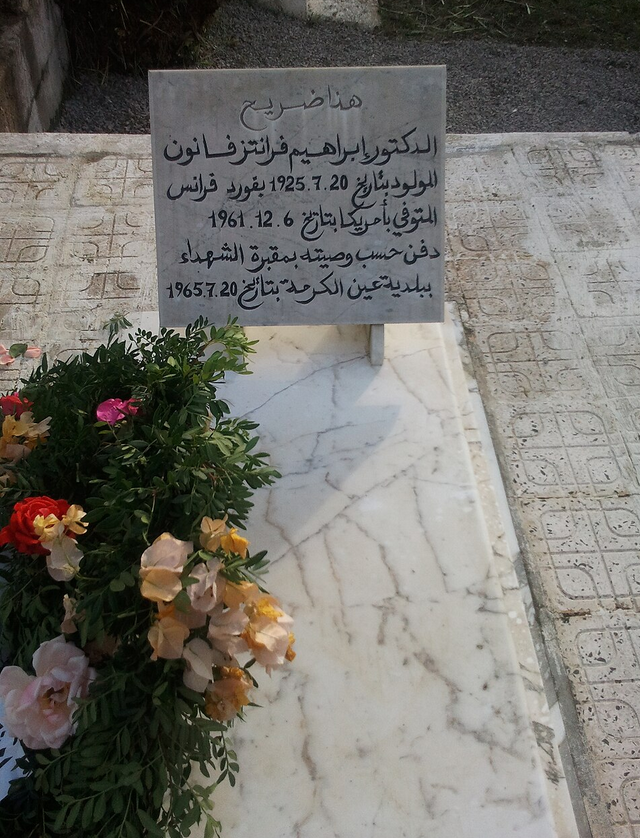 هنا ضريح
الدكتور إبراهيم فرانتز فانون
المولود بتاريخ 1925.7.20 بفورد فرانس
المتوفي بأمريكا بتاريخ 1961.12.6
دفن حسب وصيته بمقبرة الشهداء
ببلدية عين الكرمة بتاريخ 1965.7.20